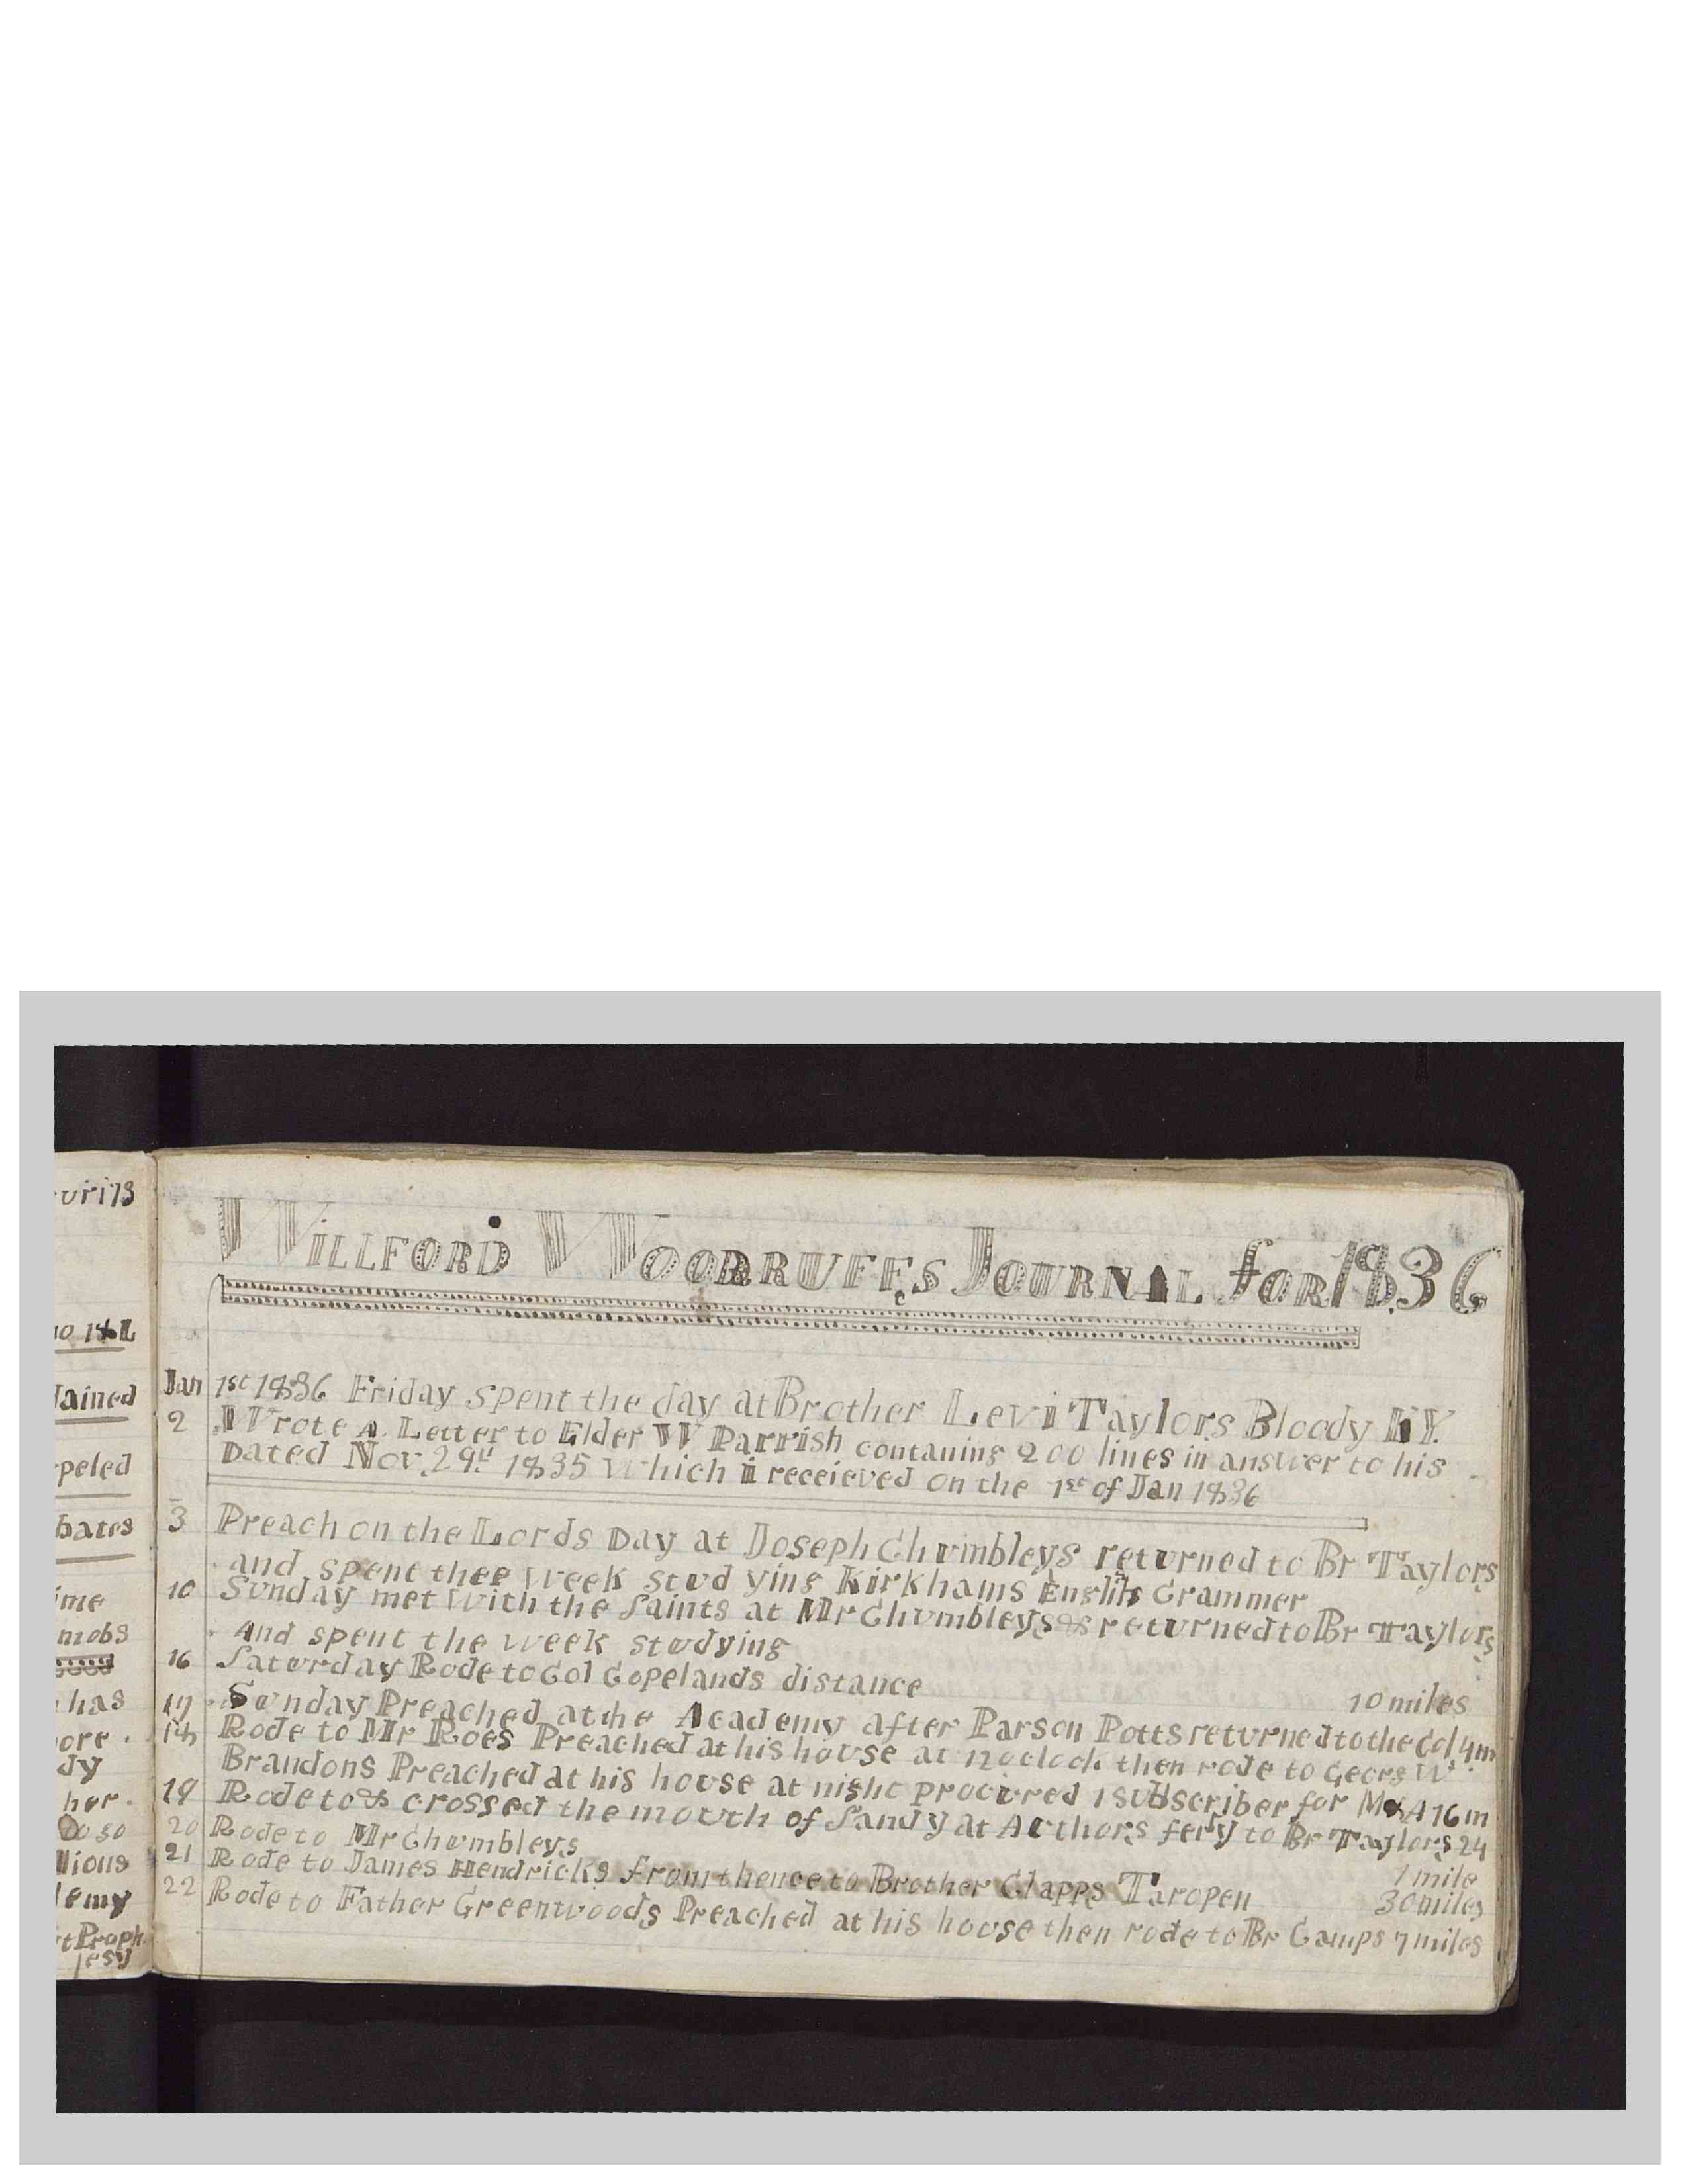 uri 73
no 14L
dained
peled
bates
ime
mobs
has
ore.
dy
her.
Do so
llions
demy
t Proph
esy
WILLFORD WOODRUFFS JOURNAL for 1836
Jan 1st 1836 Friday spent the day at Brother Levi Taylors Bloody KY.
2 I Wrote A Letter to Elder W Parrish contaning 200 lines in answer to his
Dated Nov. 29th 1835 Which i receieved on the 1st of Jan 1836
3 Preach on the Lords Day at Joseph Chumbleys returned to Br Taylors
and spent thee Week studying Kirkhams English Grammer
10 Sunday met With the Saints at Mr Chumbleys & returned to Br Taylors
And spent the week studying
16 Saturday Rode to Col Copelands distance 10 miles
17 Sunday Preached at the Academy after Parson Potts returned to the Col 4m
18 Rode to Mr Roes Preached at his house at 12 oclock then rode to Georg W
Brandons Preached at his house at night procured 1 subscriber for M&A 16m
19 Rode to & crossed the mouth of Sandy at Authors fery to Br Taylors 24
20 Rode to Mr Chumbleys 1 mile
21 Rode to James Hendricks from thence to Brother Clapps Taropen 30 miles
22 Rode to Father Greenwoods Preached at his house then rode to Br Camps 7 miles